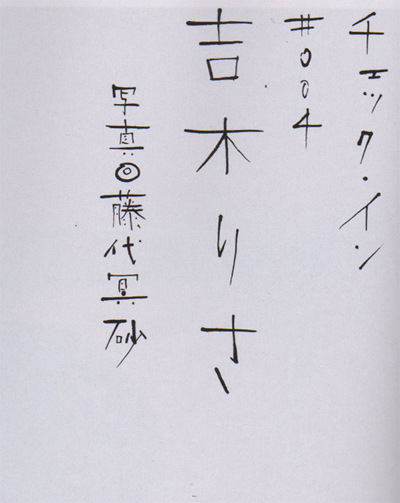 チェック・イン
#004
吉木りさ
写真◎藤代冥砂